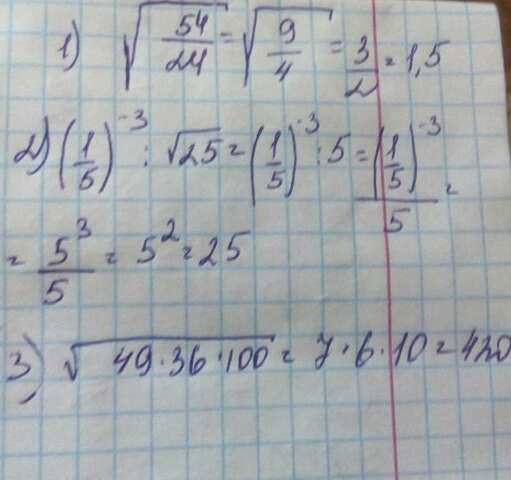 1) √(54/24) = √(9/4) = 3/2 = 1,5
2) (1/5)^-3 : √25 = (1/5)^-3 : 5 = (1/5)^-3/5 =
= 5^3/5 = 5^2 = 25
3) √(49·36·100) = 7·6·10 = 420